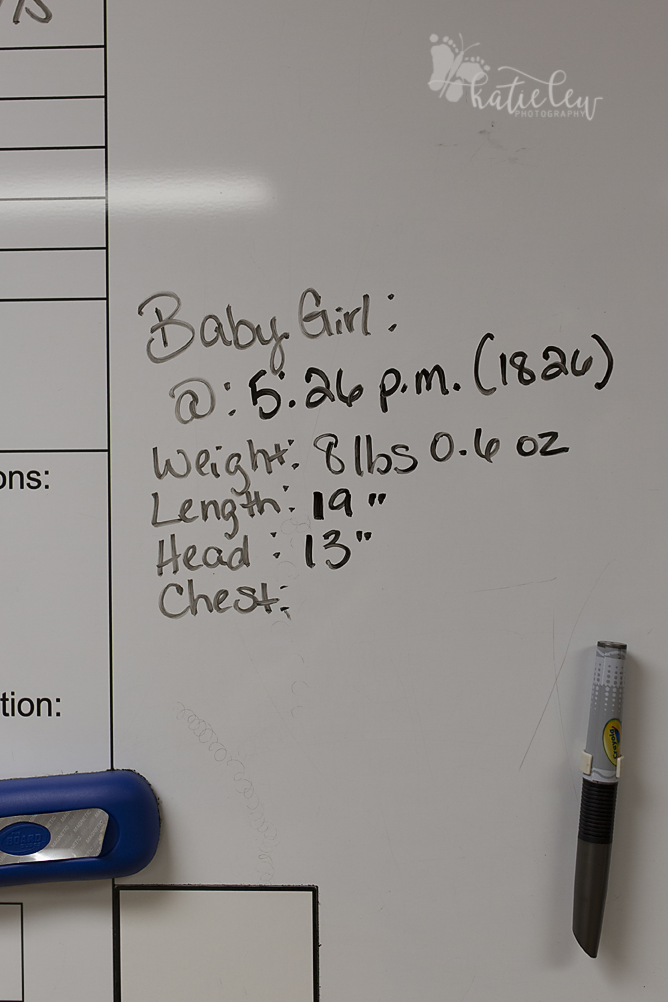 katie lew
PHOTOGRAPHY
Baby Girl:
@: 5:26 p.m. (1826)
Weight: 8 lbs 0.6 oz
Length: 19"
Head: 13"
Chest:
ons:
tion:
Crayola